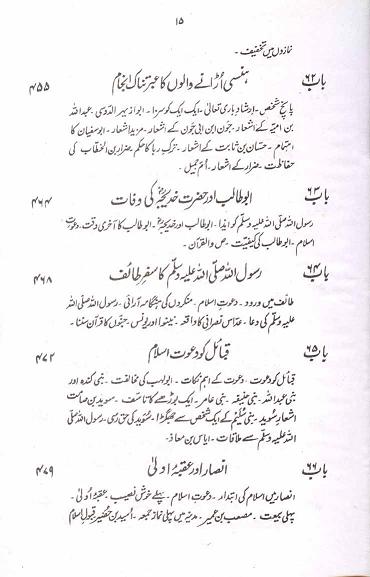 ۱۵
نمازوں میں تخفیف ۔
باب ۶۲ ہنسی اُڑانے والوں کا عبرتناک انجام ۴۵۵
پانچ شخص ۔ ارشادِ باری تعالیٰ ۔ ایک ایک کو سزا ۔ ابو ازیہر الدّوسی عبداللہ
بن امیّہ کے اشعار ۔ جَون ابن ابی جَون کے اشعار ۔ مزید اشعار ۔ ابو سفیان کا
اہتمام ۔ حسّان بن ثابت کے اشعار ۔ ترکِ ربا کا حکم ضرار بن الخطّاب کی
حفاظت ضرار کے اشعار ۔ اُمّ جمیل ۔
باب ۶۳ ابو طالب اور حضرت خدیجہؓ کی وفات ۴۶۴
رسول اللہ صلی اللہ علیہ وسلم کو ایذا ۔ ابو طالب اور خدیجہؓ ۔ ابو طالب کا آخری وقت ۔ دعوتِ
اسلام ۔ ابو طالب کی کیفیّت ۔ ص والقرآن ۔
باب ۶۴ رسول اللہ صلّی اللہ علیہ وسلّم کا سفرِ طائف ۴۶۸
طائف میں ورود ۔ دعوتِ اسلام ۔ منکروں کی ہنگامہ آرائی ۔ رسول اللہ صلی اللہ
علیہ وسلم کی دعا ۔ عدّاس نصرانی کا واقعہ ۔ نینوا اور یونسؑ ۔ جنّوں کا قرآن سننا ۔
باب ۶۵ قبائل کو دعوتِ اسلام ۴۷۲
قبائل کو دعوت ۔ دعوت کے اہم نکات ۔ ابو لہب کی مخالفت ۔ بنی کندہ اور
بنی عبداللہ ۔ بنی حنیفہ ۔ بنی عامر ۔ ایک بوڑھے کا تاسّف ۔ سوید بن صامت
اشعارِ سُوید ۔ بنی سُلیم کے ایک شخص سے جھگڑا ۔ سُوید کی حق رسی ۔ رسول اللہ صلّی
اللہ علیہ وسلم سے ملاقات ۔ ایاس بن معاذ ۔
باب ۶۶ انصار اور عقبۂ اُولیٰ ۴۷۹
انصار میں اسلام کی ابتدار ۔ دعوتِ اسلام ۔ پہلے خوش نصیب ۔ عقبۂ اُولیٰ ۔
پہلی بیعت ۔ مصعب بن عمیر ۔ مدینہ میں پہلی نمازِ جمعہ ۔ اُسید بن حضیر قبولِ اسلام